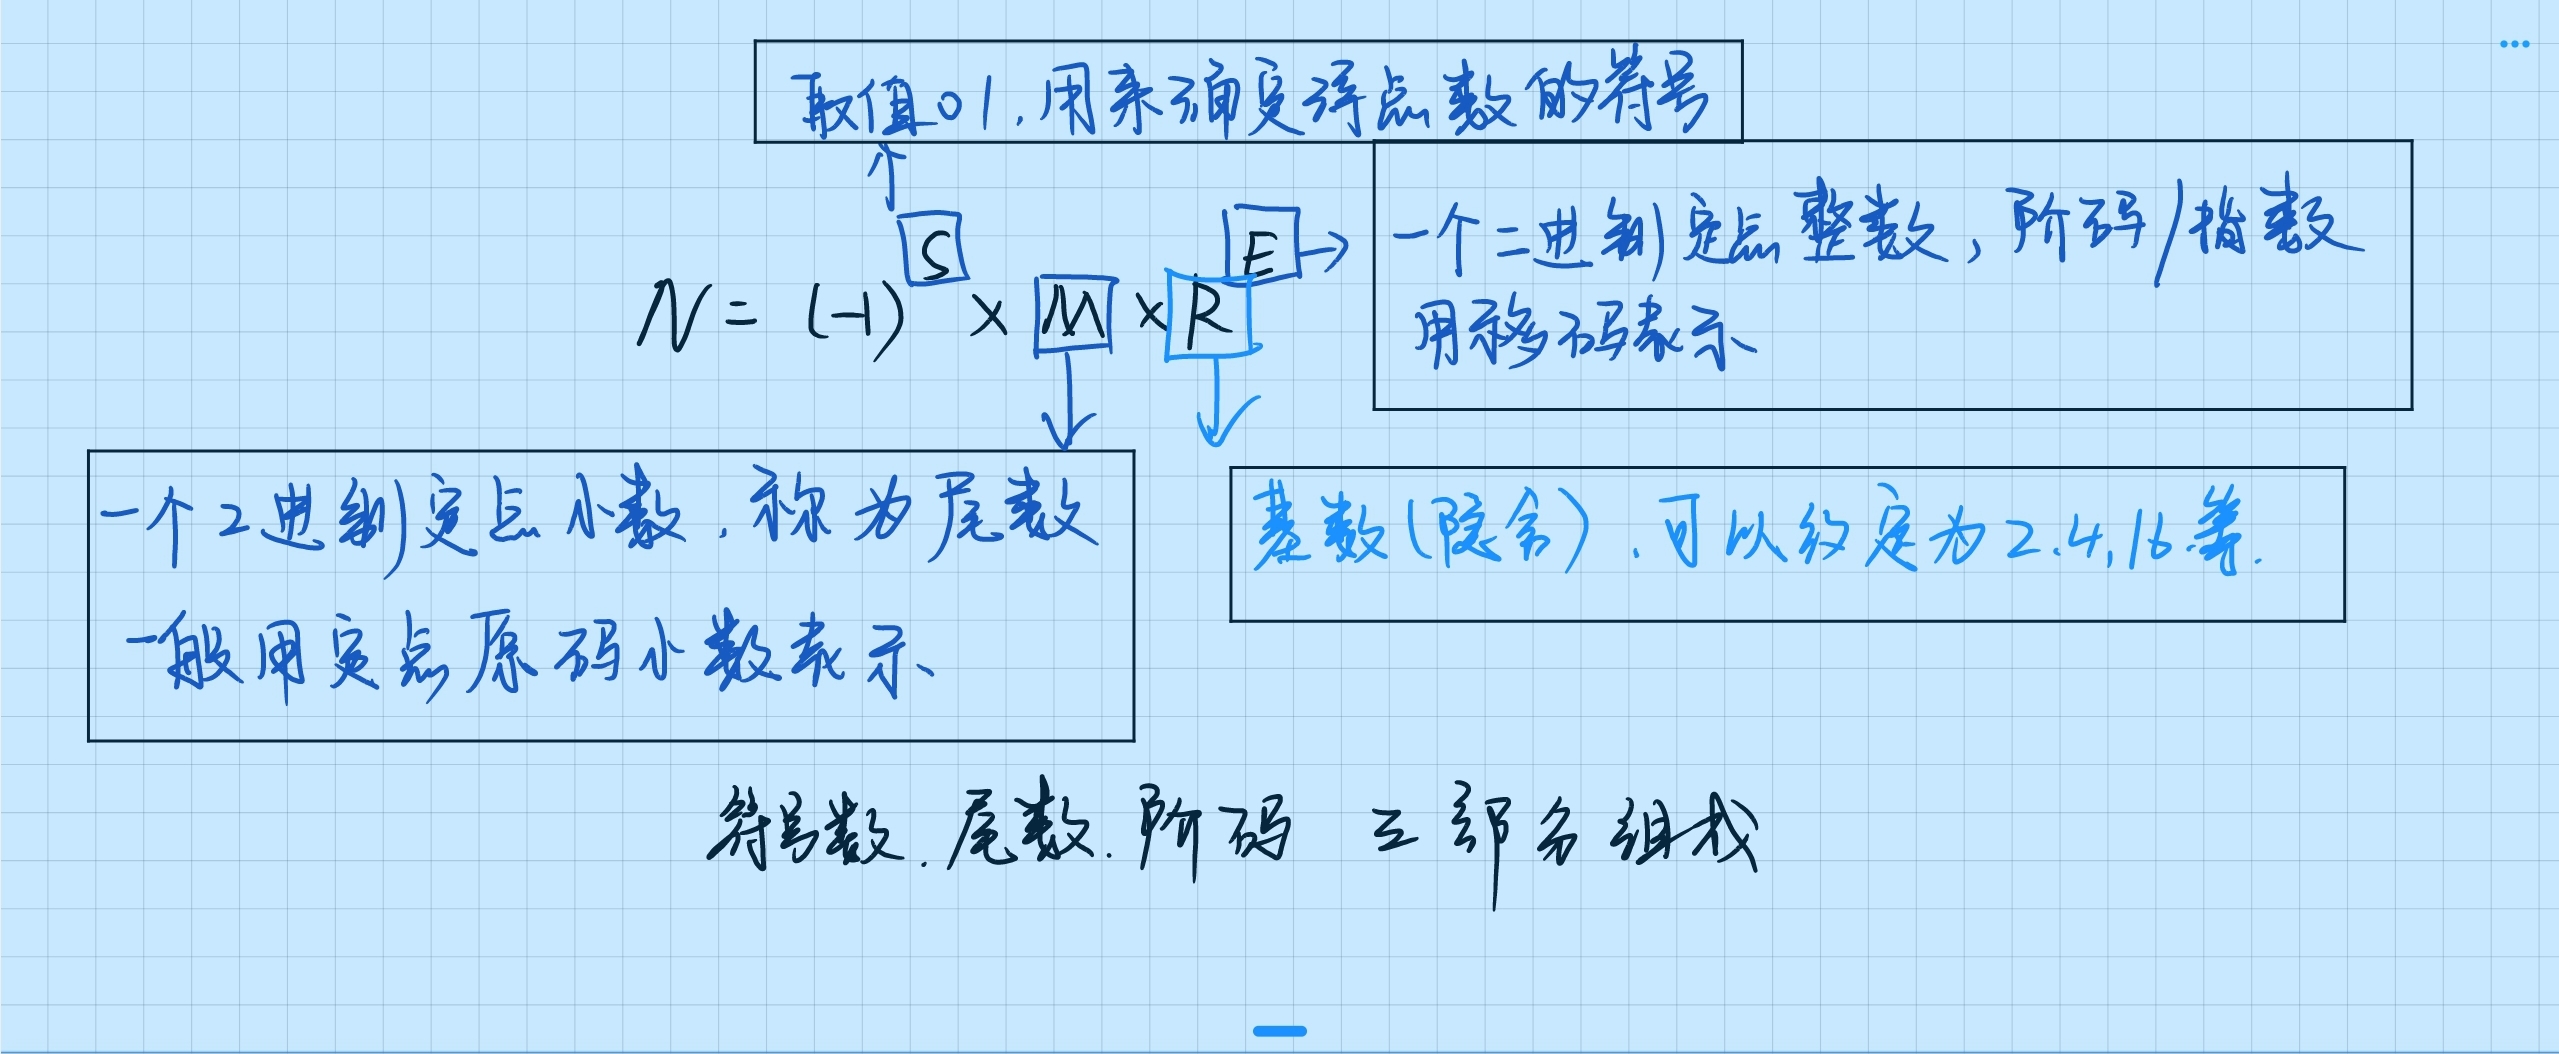 取值01,用来确定浮点数的符号
N = (-1)^S × M × R^E
一个二进制定点整数,阶码/指数
用移码表示
一个2进制定点小数,称为尾数
一般用定点原码小数表示
基数(隐含),可以约定为2.4,16等.
符号数.尾数.阶码 三部分组成